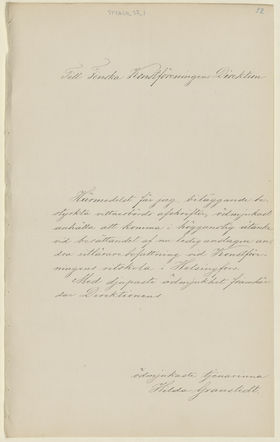 52
Till Finska Konstföreningens Direktion
Härmedelst får jag, biläggande be-
styrkta vitsordsafskrifter, ödmjukast
anhålla att komma i höggunstig åtanke
vid besättandet af en ledig anslagen an-
dra utlärarebefattning vid Konstföre-
ningens ritskola i Helsingfors.
Med djupaste ödmjukhet framhär-
dar Direktionens
ödmjukaste tjenarinna
Hilda Granstedt.